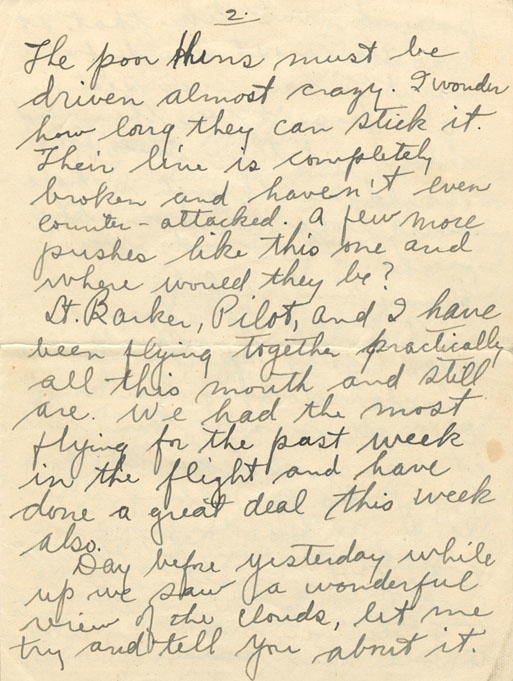 2.
The poor Huns must be
driven almost crazy. I wonder
how long they can stick it.
Their line is completely
broken and haven't even
counter-attacked. A few more
pushes like this one and
where would they be?
Lt. Barker, Pilot, and I have
been flying together practically
all this month and still
are. We had the most
flying for the past week
in the flight and have
done a great deal this week
also.
Day before yesterday while
up we saw a wonderful
view of the clouds, let me
try and tell you about it.